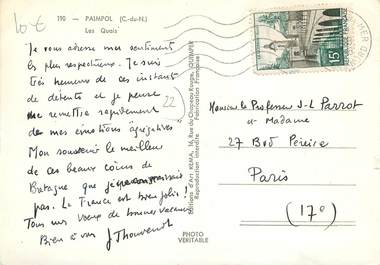 10 €
190 - PAIMPOL (C.-du-N.)
Les Quais
Je vous adresse mes sentiments
les plus respectueux. Je suis
très heureux de ces instants
de détente et je pense
me remettre rapidement
de mes émotions
Mon souvenir le meilleur
de ces beaux coins de
Bretagne que je connaissais
pas. La France est bien jolie.
Tous mes vœux de bonnes vacances
Bien à vous J Thouvenot
22
Editions d'Art KEMA, 16, Rue du Chapeau-Rouge, QUIMPER
Reproduction interdite Fabrication Française
PHOTO
VERITABLE
15F
Monsieur le Professeur J-L Parrot
et Madame
27 Bd Péreire
Paris
(17e)